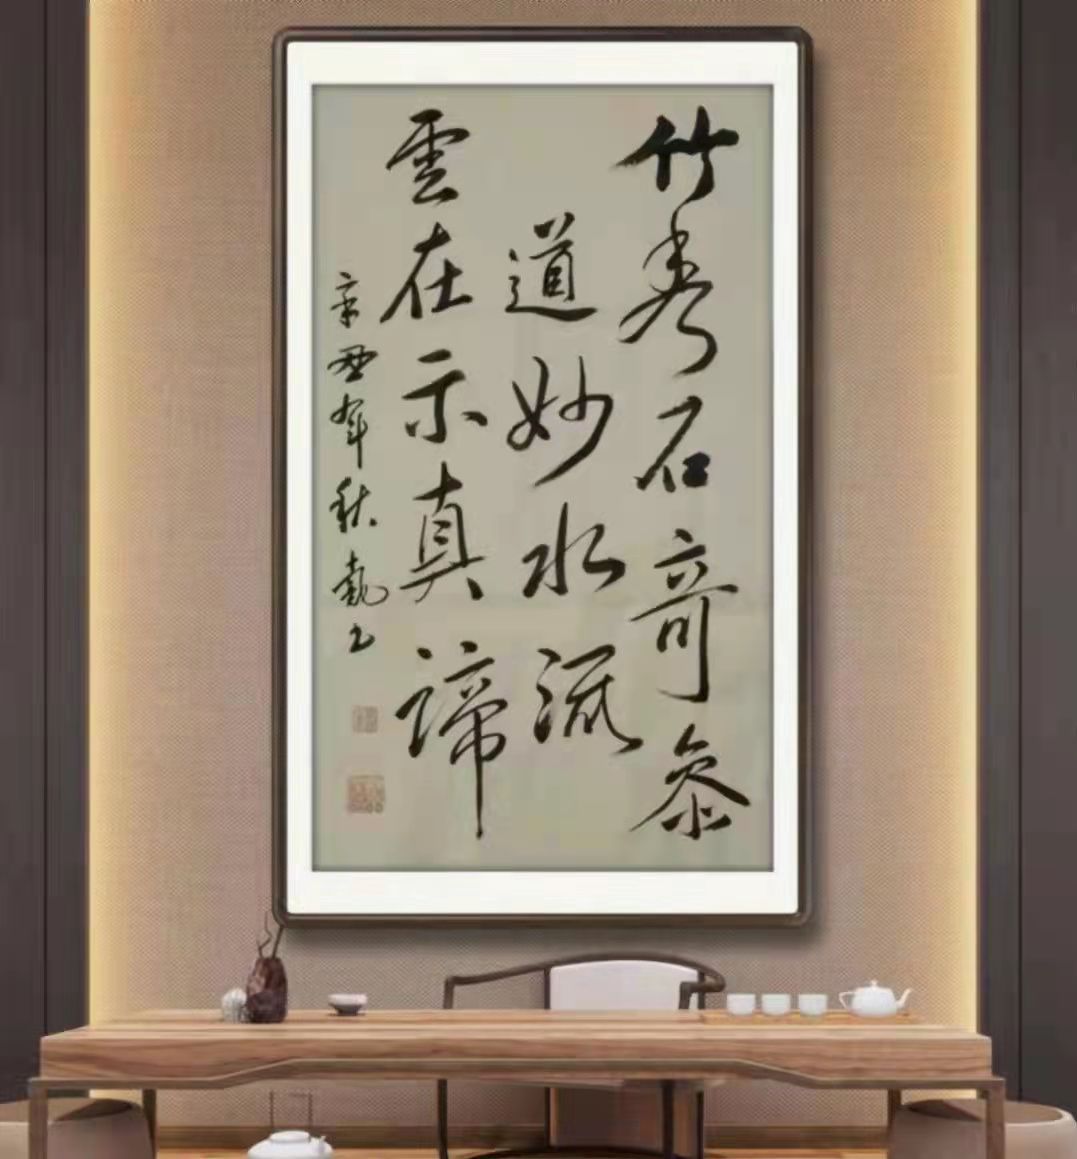 竹秀石奇參
道妙水流
雲在示真諦
辛丑年秋